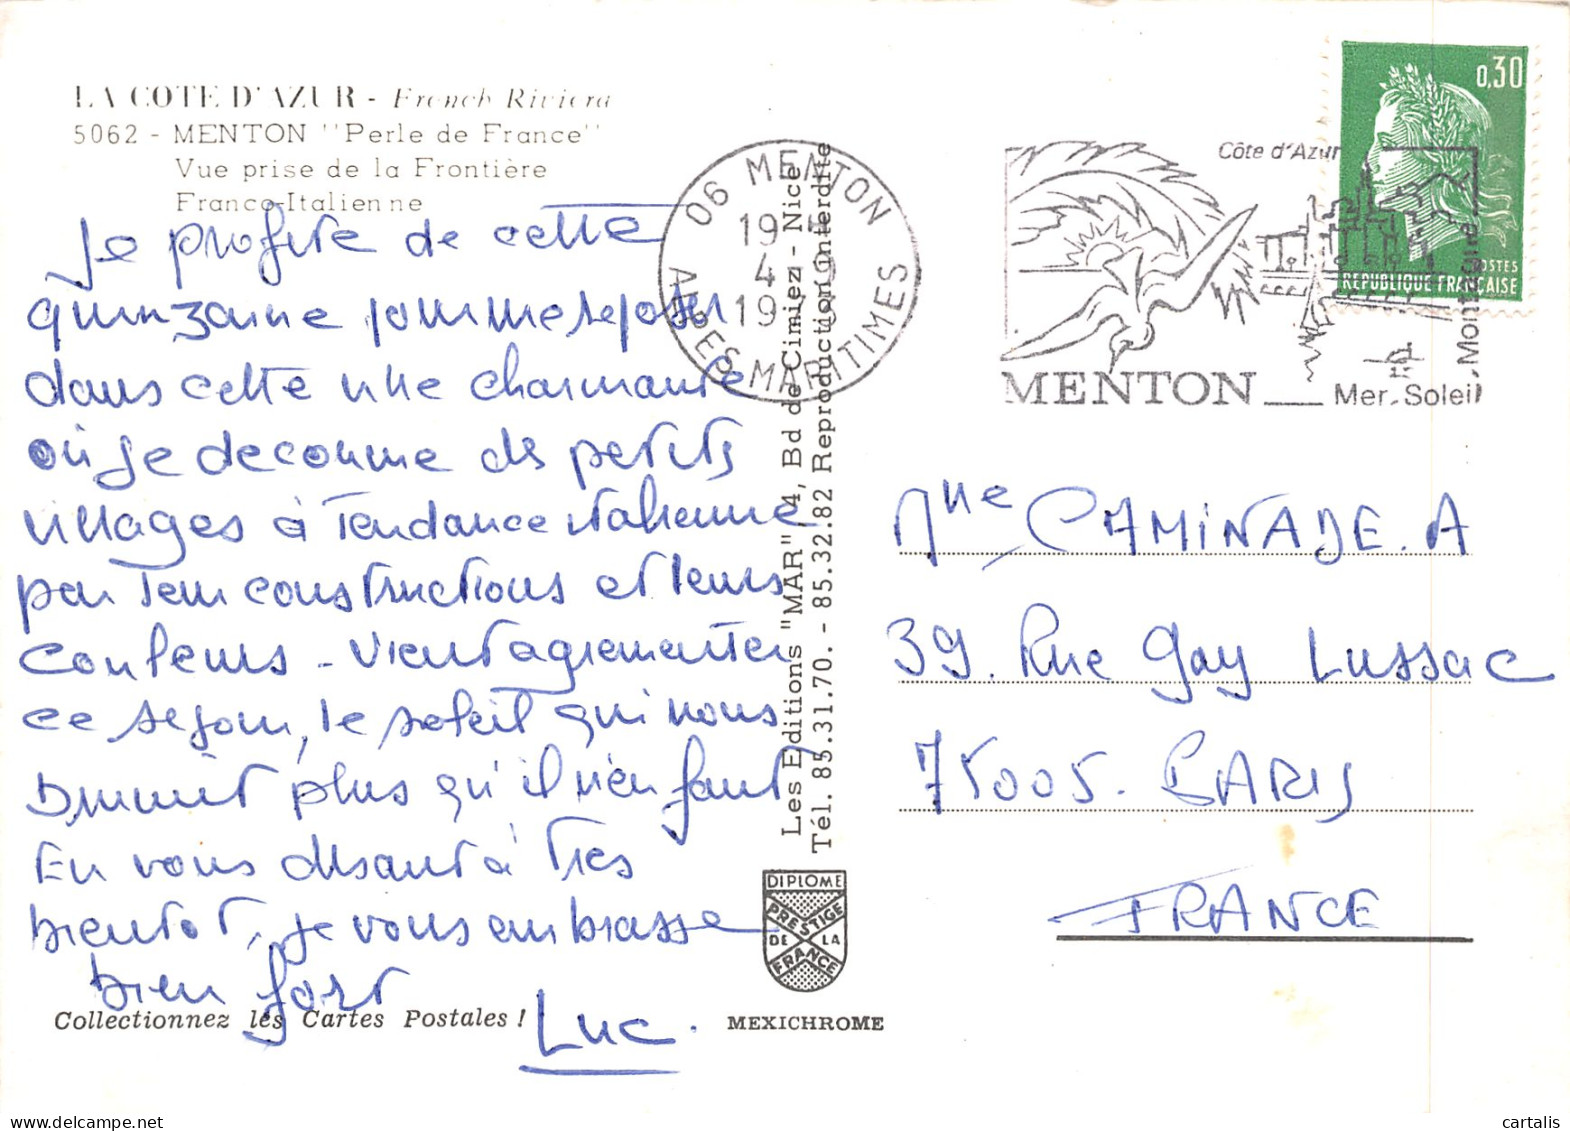 LA COTE D'AZUR - French Riviera
5062 - MENTON "Perle de France"
Vue prise de la Frontière
Franco-Italienne
Je profite de cette
quinzaine pour me reposer
dans cette ville charmante
où je decouvre des petits
villages à tendance italienne
par leur constructions et leurs
couleurs - vient agrementer
ce sejour, le soleil qui nous
plus qu'il n'en faut
En vous disant à tres
bientot, je vous embrasse
bien fort
Luc.
Collectionnez les Cartes Postales !
Les Editions "MAR" 4, Bd de Cimiez - Nice
Tél. 85.31.70. - 85.32.82 Reproduction interdite
DIPLOME
PRESTIGE
DE LA
FRANCE
MEXICHROME
06 MENTON
19 H
4 - 9
19
ALPES MARITIMES
Côte d'Azur
MENTON
Mer, Soleil, Montagne
0,30
POSTES
REPUBLIQUE FRANÇAISE
Mlle CAMINADE. A
39. Rue Gay Lussac
75005. PARIS
FRANCE
cartalis